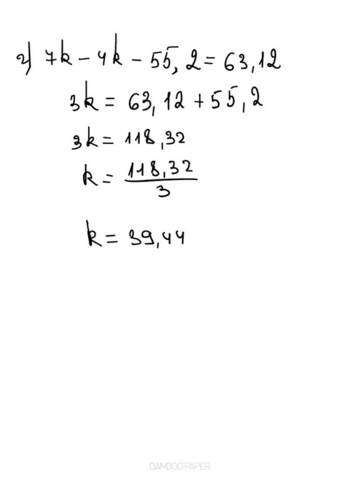 г) 7k - 4k - 55,2 = 63,12
3k = 63,12 + 55,2
3k = 118,32
k = 118,32 / 3
k = 39,44